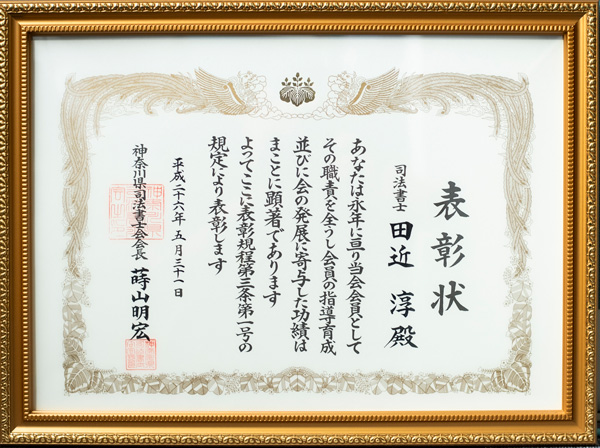 表彰状
司法書士 田近 淳 殿
あなたは永年に亘り当会会員として
その職責を全うし会員の指導育成
並びに会の発展に寄与した功績は
まことに顕著であります
よってここに表彰規程第三条第一号の
規定により表彰します
平成二十六年 五月三十一日
神奈川県司法書士会会長 蒔山明宏